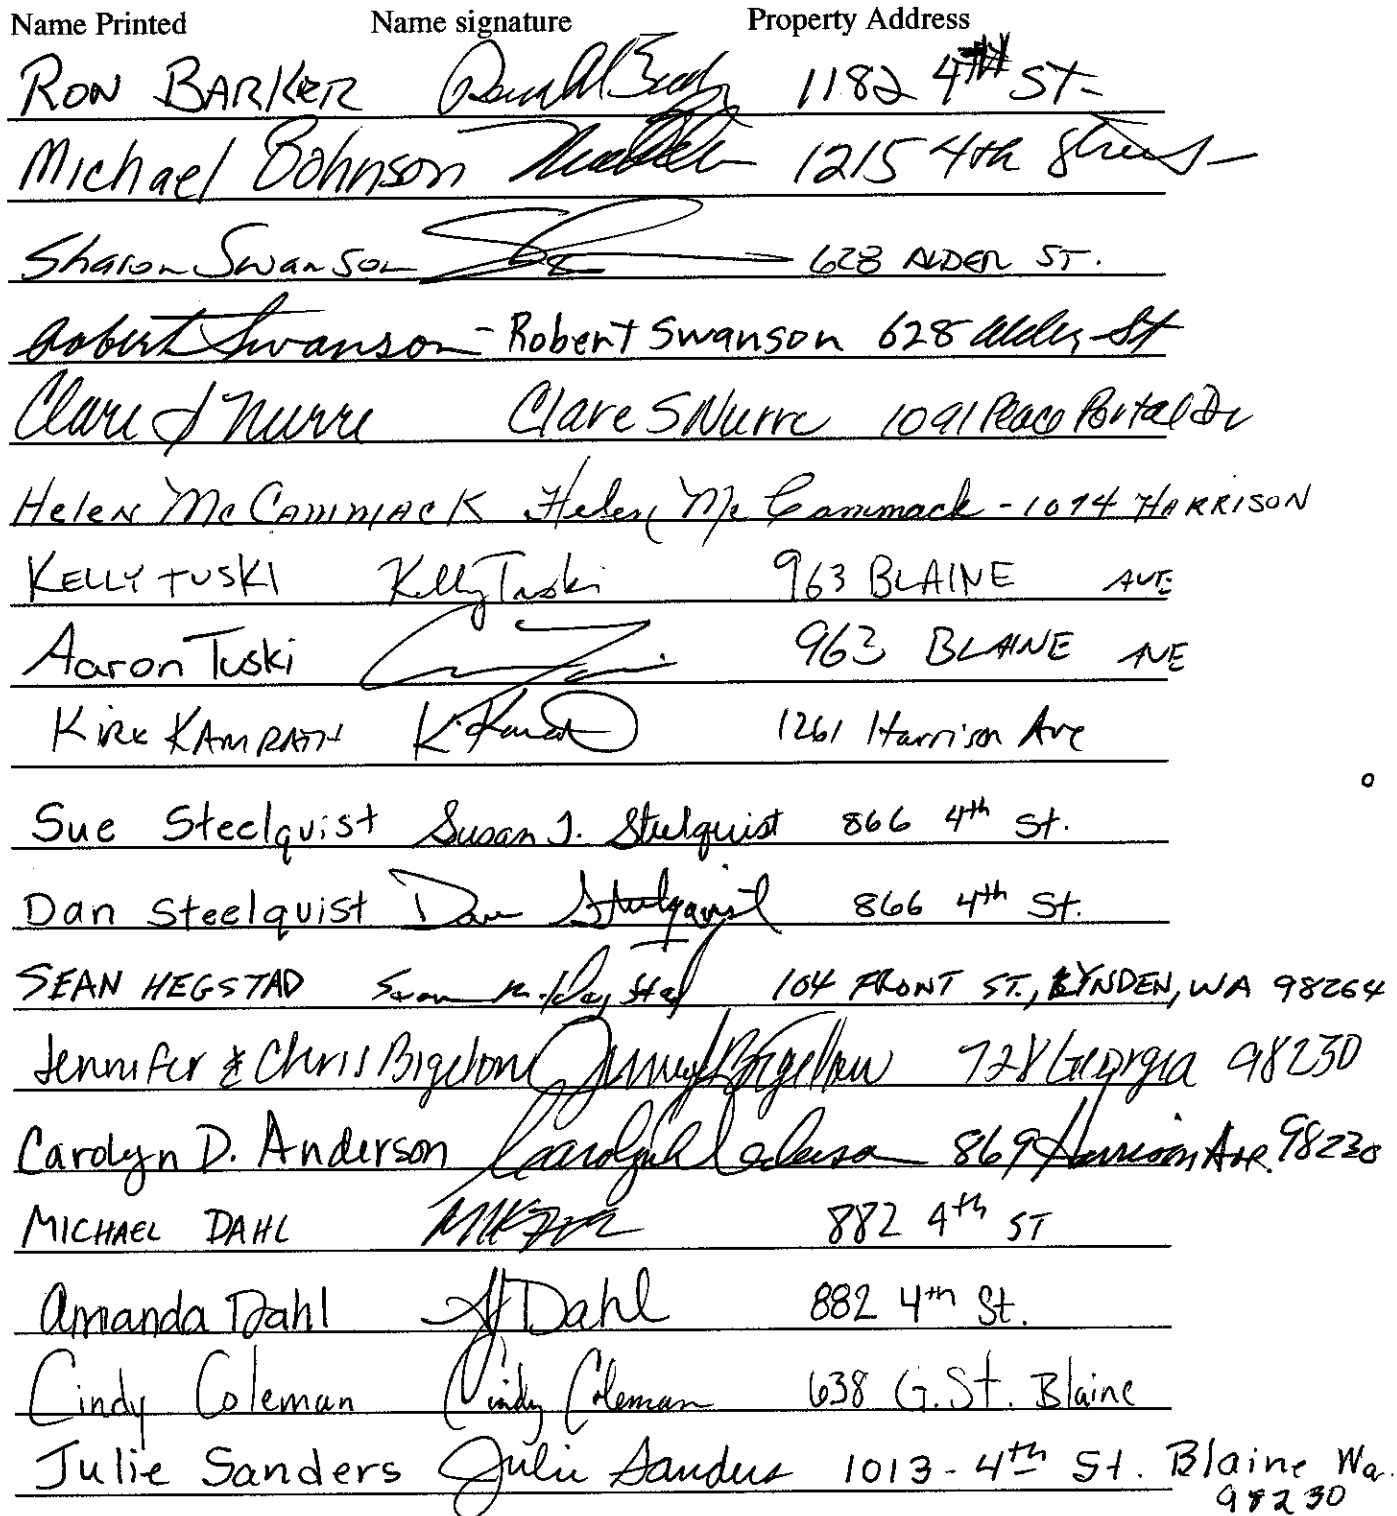 Name Printed Name signature Property Address
RON BARKER 1182 4TH ST
Michael Bohnson 1215 4th Street
Sharon Swanson 628 ALDER ST.
Robert Swanson - Robert Swanson 628 Alder St
Clare S Nurre Clare S Nurre 1091 Peace Portal Dr
Helen McCAMMACK Helen McCammack - 1074 HARRISON
KELLY TUSKI Kelly Tuski 963 BLAINE AVE
Aaron Tuski 963 BLAINE AVE
KIRK KAMRATH 1261 Harrison Ave
Sue Steelquist Susan J. Steelquist 866 4th St.
Dan Steelquist Dan Steelquist 866 4th St.
SEAN HEGSTAD 104 FRONT ST., LYNDEN, WA 98264
Jennifer & Chris Bigelow Bigelow 728 Georgia 98230
Carolyn D. Anderson 869 Harrison Ave. 98230
MICHAEL DAHL 882 4th ST
Amanda Dahl A Dahl 882 4th St.
Cindy Coleman Cindy Coleman 638 G. St. Blaine
Julie Sanders Julie Sanders 1013 - 4th St. Blaine Wa.
98230